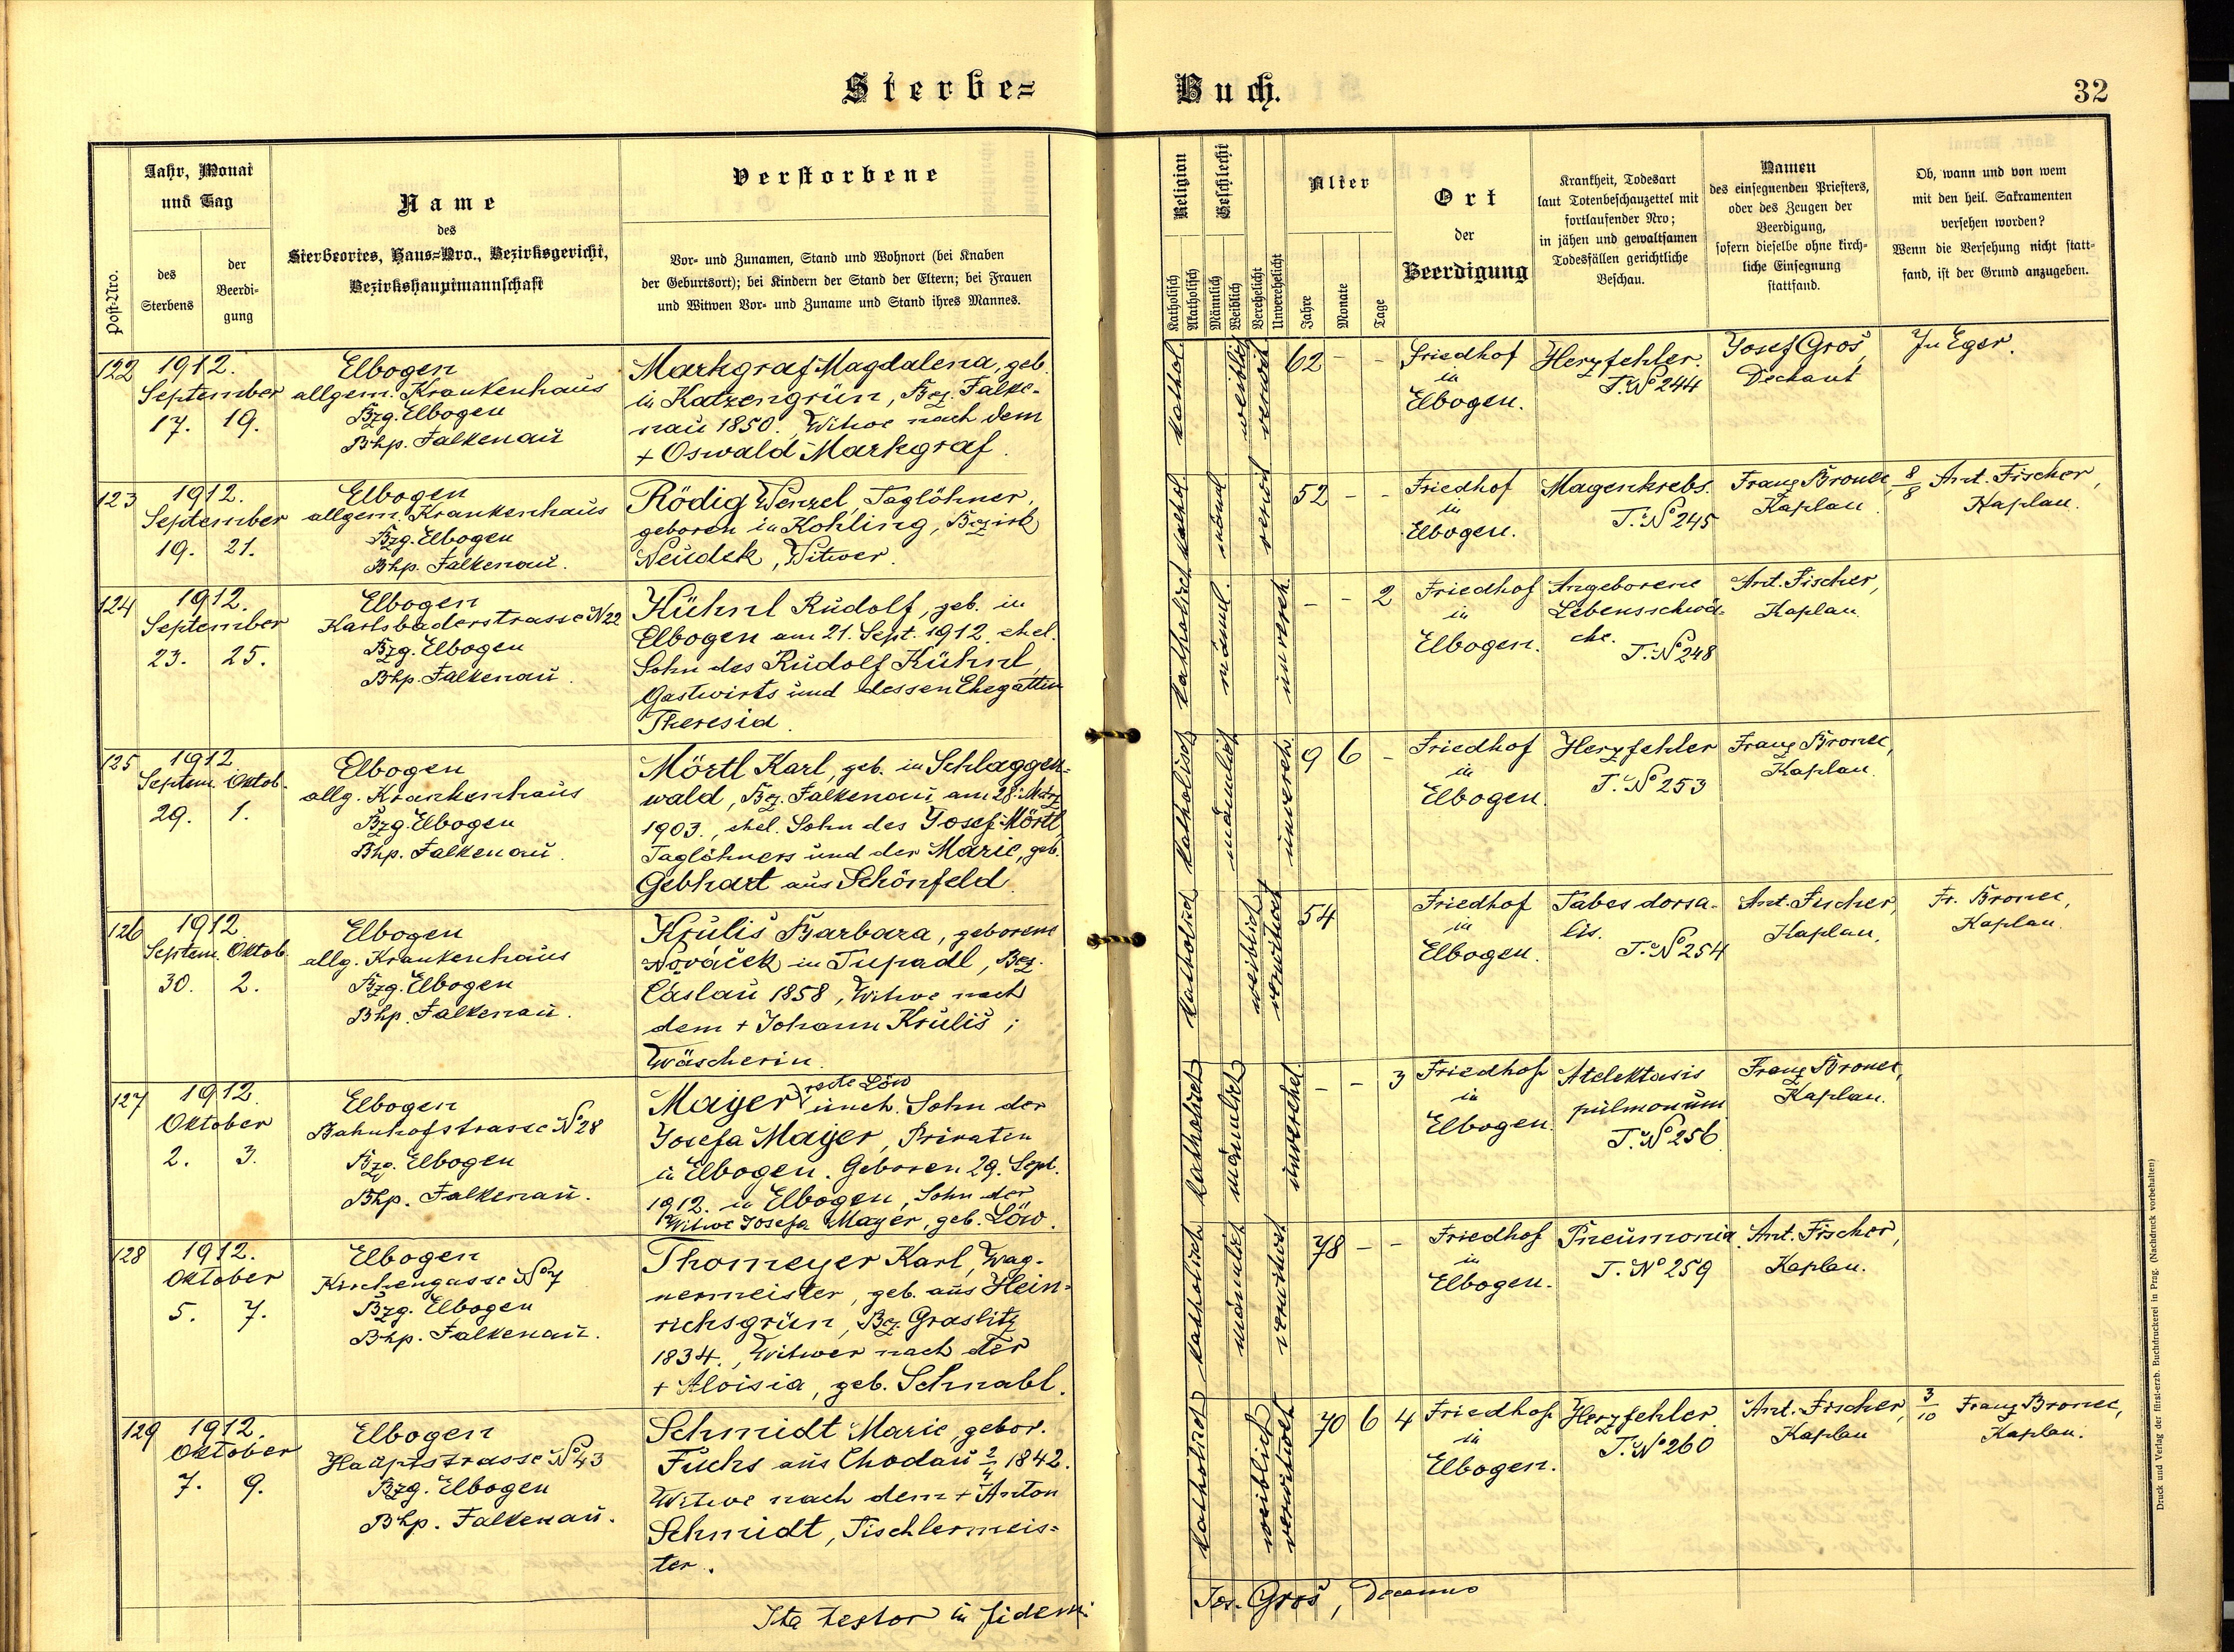 Sterbe=
Buch.
32
Post-Nro.
Jahr, Monat
und Tag
des
Sterbens
der
Beerdi-
gung
Name
des
Sterbeortes, Haus=Nro., Bezirksgericht,
Bezirkshauptmannschaft
Verstorbene
Vor- und Zunamen, Stand und Wohnort (bei Knaben
der Geburtsort); bei Kindern der Stand der Eltern; bei Frauen
und Witwen Vor- und Zuname und Stand ihres Mannes.
Religion
Katholisch
Akatholisch
Geschlecht
Männlich
Weiblich
Verehelicht
Unverehelicht
Alter
Jahre
Monate
Tage
Ort
der
Beerdigung
Krankheit, Todesart
laut Totenbeschauzettel mit
fortlaufender Nro;
in jähen und gewaltsamen
Todesfällen gerichtliche
Beschau.
Namen
des einsegnenden Priesters,
oder des Zeugen der
Beerdigung,
sofern dieselbe ohne kirch-
liche Einsegnung
stattfand.
Ob, wann und von wem
mit den heil. Sakramenten
versehen worden?
Wenn die Versehung nicht statt-
fand, ist der Grund anzugeben.
122
1912.
September
17. 19.
Elbogen
allgem. Krankenhaus
Bzg. Elbogen
Bhp. Falkenau
Markgraf Magdalena, geb.
in Katzengrün, Bez. Falke-
nau 1850., Witwe nach dem
+ Oswald Markgraf.
kathol.
weiblich
verwit.
62 - -
Friedhof
in
Elbogen.
Herzfehler.
T. No 244
Josef Groš,
Dechant
In Eger.
123
1912.
September
19. 21.
Elbogen
allgem. Krankenhaus
Bzg. Elbogen
Bhp. Falkenau.
Rödig Wenzel, Taglöhner,
geboren in Kohling, Bezirk
Neudek, Witwer.
kathol.
männl
verwit
52 - -
Friedhof
in
Elbogen.
Magenkrebs.
T. No 245
Franz Bronec,
Kaplan.
8/8 Ant. Fischer,
Kaplan.
124
1912.
September
23. 25.
Elbogen
Karlsbaderstrasse N 22
Bzg. Elbogen
Bhp. Falkenau.
Kühnl Rudolf, geb. in
Elbogen am 21. Sept. 1912, ehel.
Sohn des Rudolf Kühnl,
Gastwirts und dessen Ehegattin
Theresia.
katholisch
männl.
unvereh.
- - 2
Friedhof
in
Elbogen.
Angeborene
Lebensschwä-
che.
T. No 248
Ant. Fischer,
Kaplan.
125
1912
Septem. Oktob.
29. 1.
Elbogen
allg. Krankenhaus
Bzg. Elbogen
Bhp. Falkenau.
Mörtl Karl, geb. in Schlaggen-
wald, Bez. Falkenau am 28. März
1903., ehel. Sohn des Josef Mörtl,
Taglöhners und der Marie, geb.
Gebhart aus Schönfeld.
katholisch
männlich
unvereh.
9 6 -
Friedhof
in
Elbogen.
Herzfehler
T. No 253
Franz Bronec,
Kaplan.
126
1912
Septem. Oktob.
30. 2.
Elbogen
allg. Krankenhaus
Bzg. Elbogen
Bhp. Falkenau.
Krulis Barbara, geborene
Nováček in Tupadl, Bez.
Časlau 1858, Witwe nach
dem + Johann Kruliš;
Wäscherin.
katholisch
weiblich
verwitwet
54
Friedhof
in
Elbogen.
Tabes dorsa-
lis.
T. No 254
Ant. Fischer,
Kaplan.
Fr. Bronec,
Kaplan.
127
1912.
Oktober
2. 3.
Elbogen
Bahnhofstrasse No 28
Bzg. Elbogen
Bhp. Falkenau.
recte Löw
Mayer, uneh. Sohn der
Josefa Mayer, Privaten
in Elbogen. Geboren 29. Sept.
1912. in Elbogen, Sohn der
Witwe Josefa Mayer, geb. Löw.
katholisch
männlich
unverehel
- - 3
Friedhof
in
Elbogen.
Atelektasis
pulmonum
T. No 256
Franz Bronec,
Kaplan.
128
1912.
Oktober
5. 7.
Elbogen
Kirchengasse No 7
Bzg. Elbogen
Bhp. Falkenau.
Thomeyer Karl, Wag-
nermeister, geb. aus Hein-
richsgrün, Bez. Graslitz
1834., Witwer nach der
+ Aloisia, geb. Schnabl.
katholisch
männlich
verwitwet
78 - -
Friedhof
in
Elbogen.
Pneumonia.
T. No 259
Ant. Fischer,
Kaplan.
129
1912.
Oktober
7. 9.
Elbogen
Hauptstrasse No 43
Bzg. Elbogen
Bhp. Falkenau.
Schmidt Marie, gebor.
Fuchs aus Chodau 2/4 1842.
Witwe nach dem + Anton
Schmidt, Tischlermeis-
ter.
katholisch
weiblich
verwitwet
70 6 4
Friedhof
in
Elbogen.
Herzfehler
T. No 260
Ant. Fischer,
Kaplan
3/10 Franz Bronec,
Kaplan.
Ita testor in fidem:
Jos. Groš, Decanus
Druck und Verlag der fürst-erzb. Buchdruckerei in Prag. (Nachdruck vorbehalten)